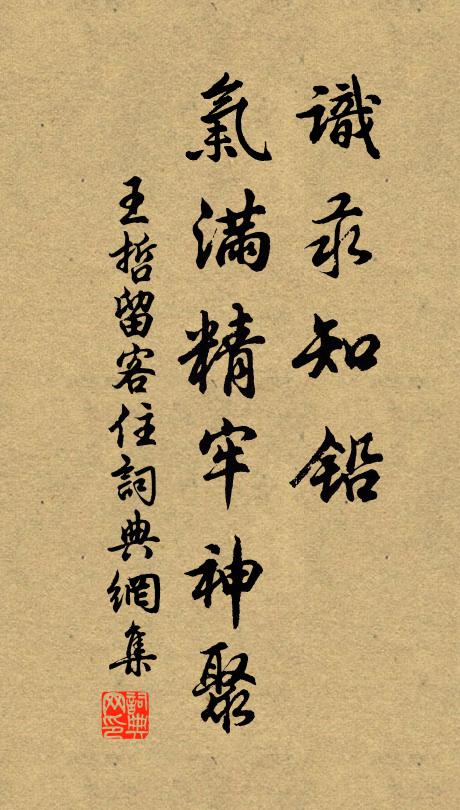 識汞知鉛
氣滿精牢神聚
王哲留客住詞典網集
詞典
网印